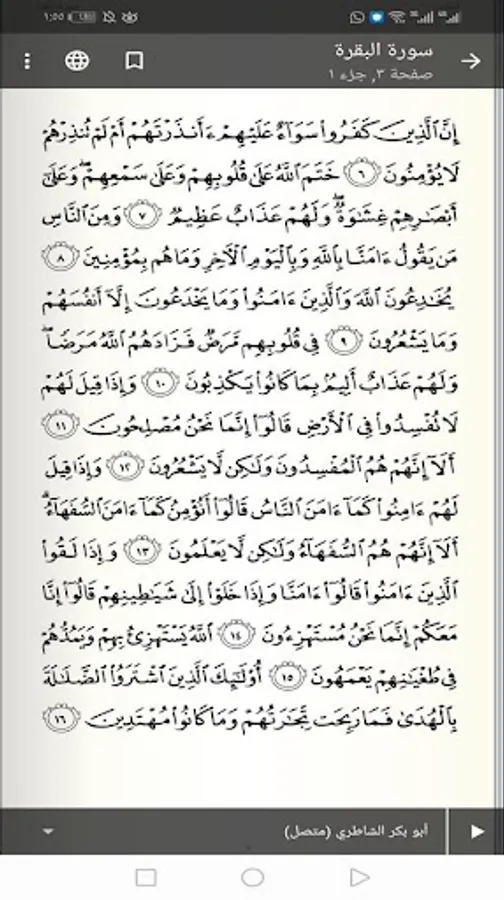 ١:٥٥
سورة البقرة
صفحة ٣, جزء ١
إِنَّ ٱلَّذِينَ كَفَرُوا۟ سَوَآءٌ عَلَيْهِمْ ءَأَنذَرْتَهُمْ أَمْ لَمْ تُنذِرْهُمْ
لَا يُؤْمِنُونَ ٦ خَتَمَ ٱللَّهُ عَلَىٰ قُلُوبِهِمْ وَعَلَىٰ سَمْعِهِمْ ۖ وَعَلَىٰٓ
أَبْصَٰرِهِمْ غِشَٰوَةٌ ۖ وَلَهُمْ عَذَابٌ عَظِيمٌ ٧ وَمِنَ ٱلنَّاسِ
مَن يَقُولُ ءَامَنَّا بِٱللَّهِ وَبِٱلْيَوْمِ ٱلْءَاخِرِ وَمَا هُم بِمُؤْمِنِينَ ٨
يُخَٰدِعُونَ ٱللَّهَ وَٱلَّذِينَ ءَامَنُوا۟ وَمَا يَخْدَعُونَ إِلَّآ أَنفُسَهُمْ
وَمَا يَشْعُرُونَ ٩ فِى قُلُوبِهِم مَّرَضٌ فَزَادَهُمُ ٱللَّهُ مَرَضًا ۖ
وَلَهُمْ عَذَابٌ أَلِيمٌۢ بِمَا كَانُوا۟ يَكْذِبُونَ ١٠ وَإِذَا قِيلَ لَهُمْ
لَا تُفْسِدُوا۟ فِى ٱلْأَرْضِ قَالُوٓا۟ إِنَّمَا نَحْنُ مُصْلِحُونَ ١١
أَلَآ إِنَّهُمْ هُمُ ٱلْمُفْسِدُونَ وَلَٰكِن لَّا يَشْعُرُونَ ١٢ وَإِذَا قِيلَ
لَهُمْ ءَامِنُوا۟ كَمَآ ءَامَنَ ٱلنَّاسُ قَالُوٓا۟ أَنُؤْمِنُ كَمَآ ءَامَنَ ٱلسُّفَهَآءُ ۗ
أَلَآ إِنَّهُمْ هُمُ ٱلسُّفَهَآءُ وَلَٰكِن لَّا يَعْلَمُونَ ١٣ وَإِذَا لَقُوا۟
ٱلَّذِينَ ءَامَنُوا۟ قَالُوٓا۟ ءَامَنَّا وَإِذَا خَلَوْا۟ إِلَىٰ شَيَٰطِينِهِمْ قَالُوٓا۟ إِنَّا
مَعَكُمْ إِنَّمَا نَحْنُ مُسْتَهْزِءُونَ ١٤ ٱللَّهُ يَسْتَهْزِئُ بِهِمْ وَيَمُدُّهُمْ
فِى طُغْيَٰنِهِمْ يَعْمَهُونَ ١٥ أُو۟لَٰٓئِكَ ٱلَّذِينَ ٱشْتَرَوُا۟ ٱلضَّلَٰلَةَ
بِٱلْهُدَىٰ فَمَا رَبِحَت تِّجَٰرَتُهُمْ وَمَا كَانُوا۟ مُهْتَدِينَ ١٦
أبو بكر الشاطري (متصل)